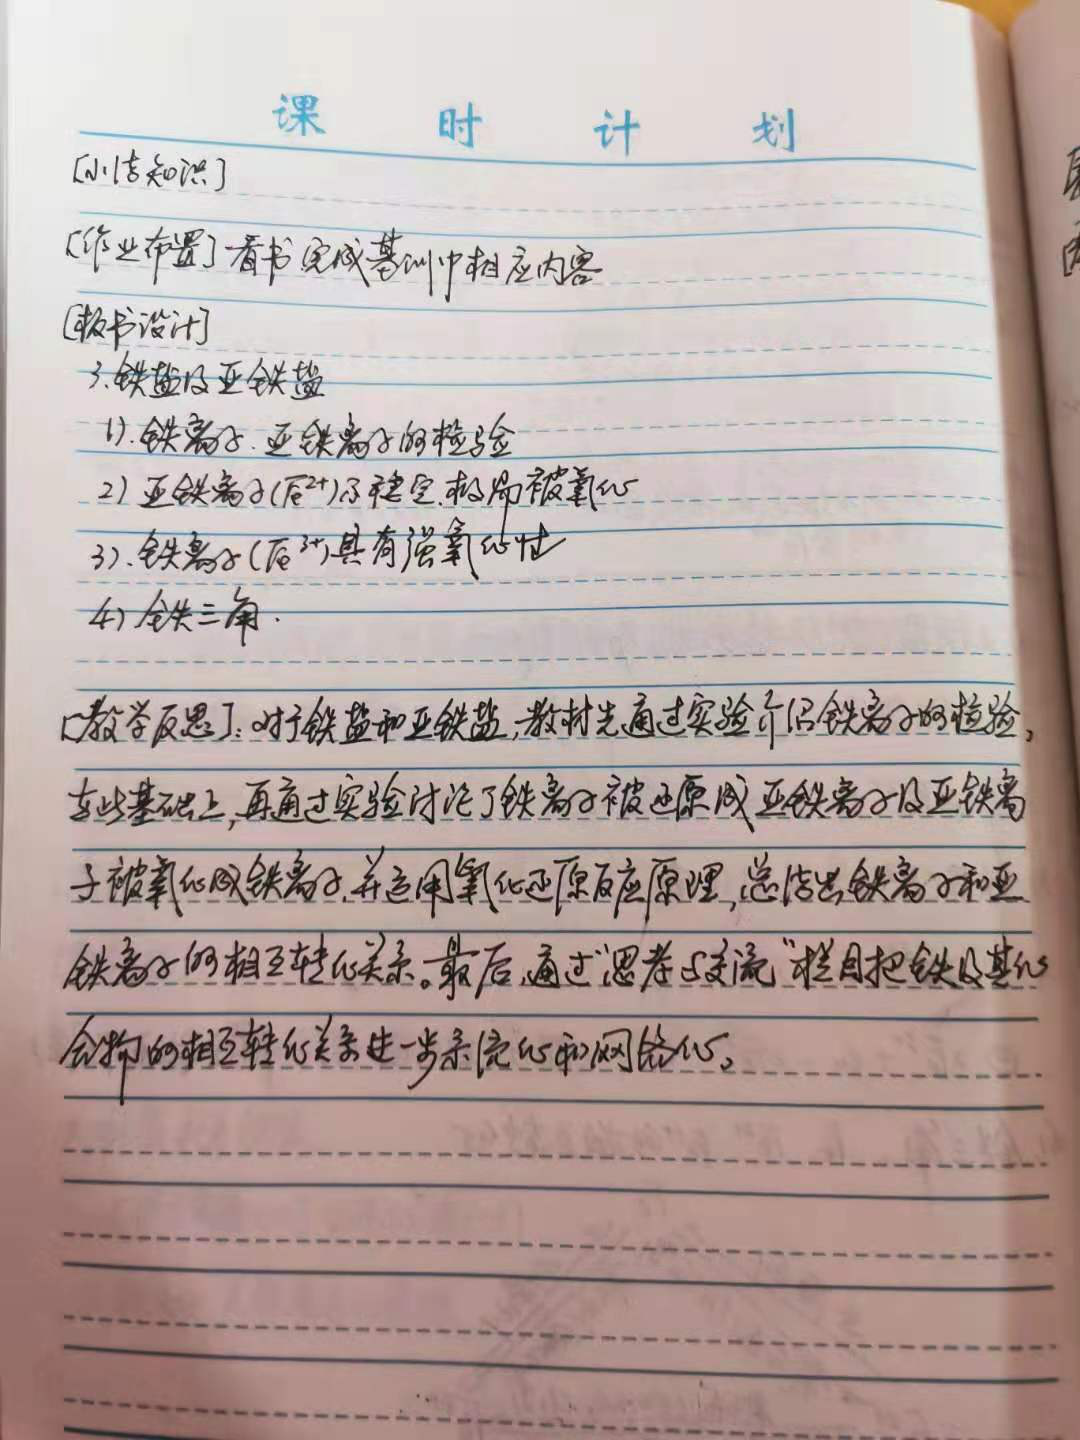 课时计划
[小结知识]
[作业布置] 看书 完成基训中相应内容
[板书设计]
3.铁盐及亚铁盐
1).铁离子.亚铁离子的检验
2)亚铁离子(Fe²⁺)不稳定,极易被氧化
3).铁离子(Fe³⁺)具有强氧化性
4)铁三角.
[教学反思]:对于铁盐和亚铁盐,教材先通过实验介绍铁离子的检验,
在此基础上,再通过实验讨论了铁离子被还原成亚铁离子及亚铁离
子被氧化成铁离子,并运用氧化还原反应原理,总结出铁离子和亚
铁离子的相互转化关系。最后,通过“思考与交流”栏目把铁及其化
合物的相互转化关系进一步系统化和网络化。